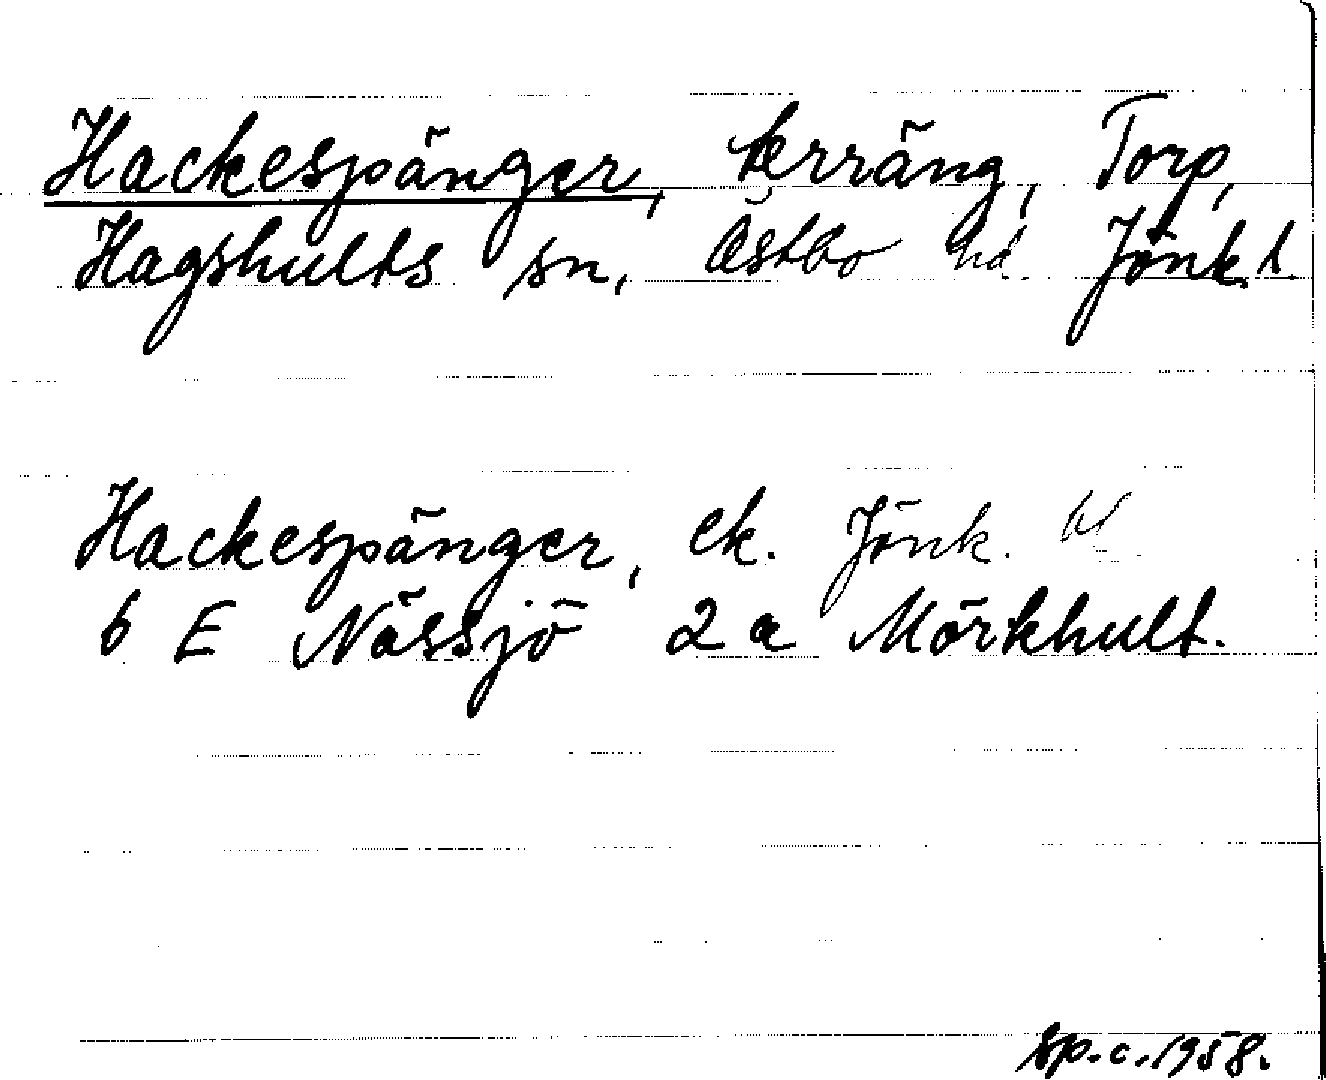 Hackespänger, terräng, Torp,
Hagshults sn, Östbo hd. Jönk. l.
Hackespänger, ek. Jönk. bl
6 E Nässjö 2 a Mörkhult.
Sp.c. 1958.